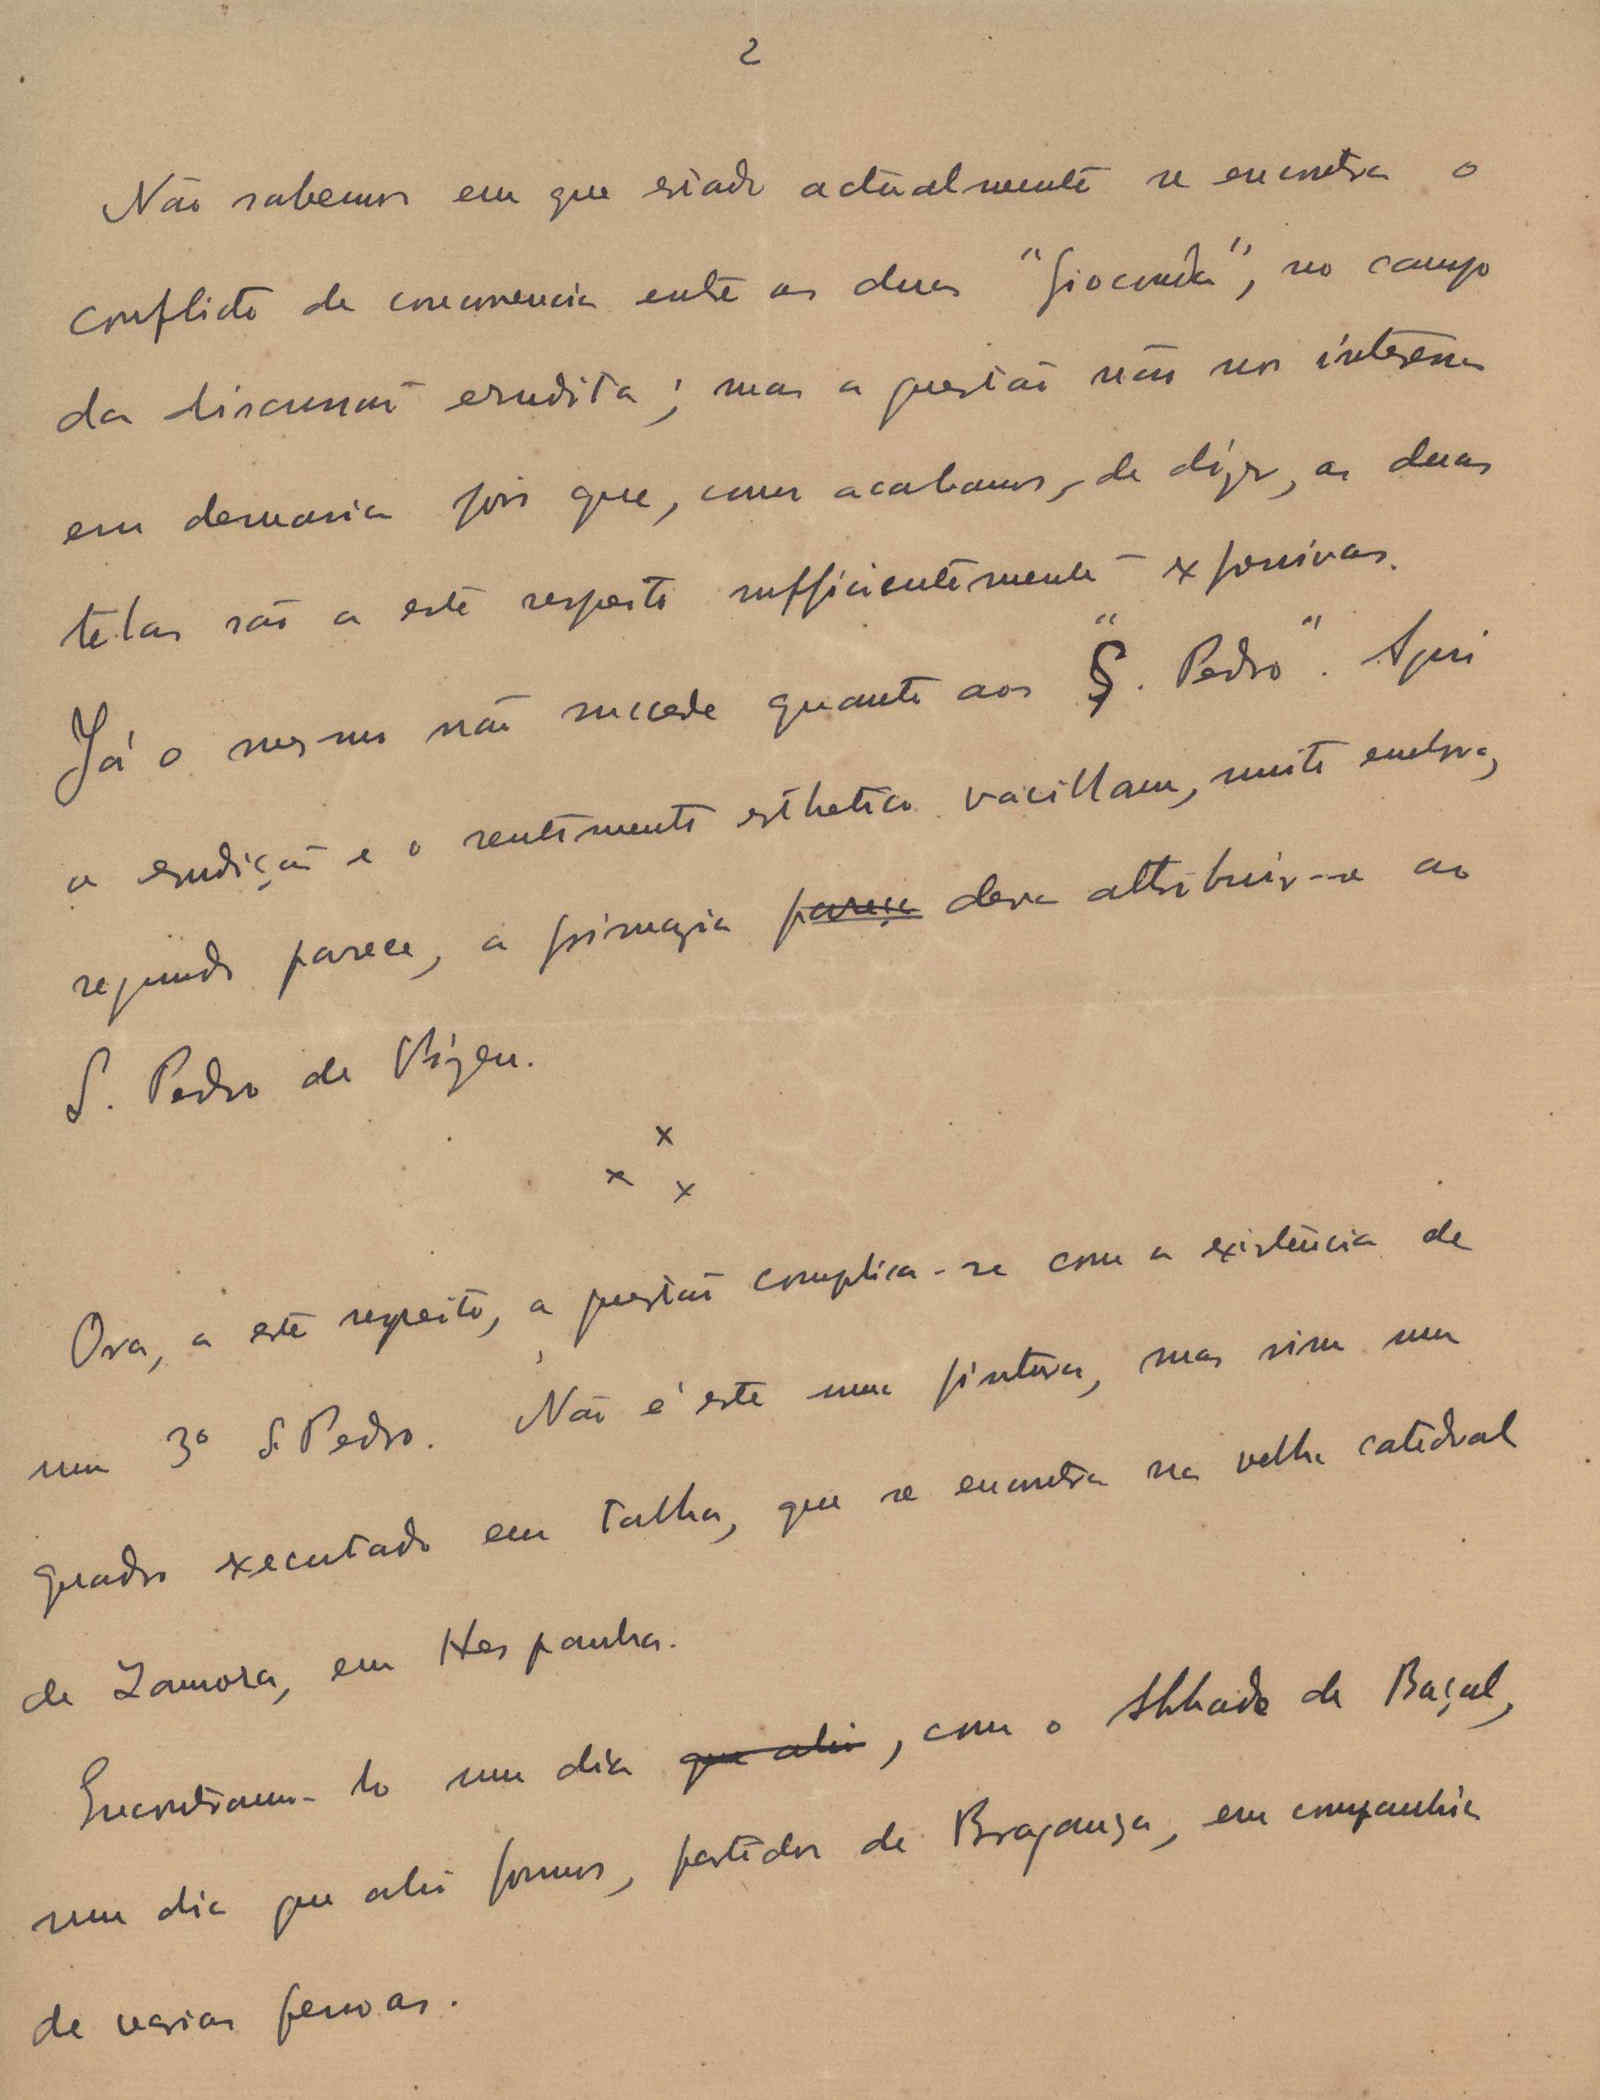 2
Não sabemos em que estado actualmente se encontra o
conflicto de concorrencia entre as duas "Gioconda", no campo
da discussão erudita; mas a questão não nos interessa
em demasia pois que, como acabamos, de dizer, as duas
telas são a este respeito sufficientemente expressivas.
Já o mesmo não succede quanto aos "S. Pedro". Aqui
a erudição e o sentimento esthetico vacillam, muito embora,
segundo parece, a primazia pareça deva attribuir-se ao
S. Pedro de Vizeu.
x
x x
Ora, a este respeito, a questão complica-se com a existência de
um 3º S. Pedro. Não é este uma pintura, mas sim um
quadro executado em talha, que se encontra na velha catedral
de Zamora, em Hespanha.
Encontramo-lo um dia que ahi, com o Abbade de Baçal,
um dia que ahi fomos, partidos de Bragança, em companhia
de varias pessoas.